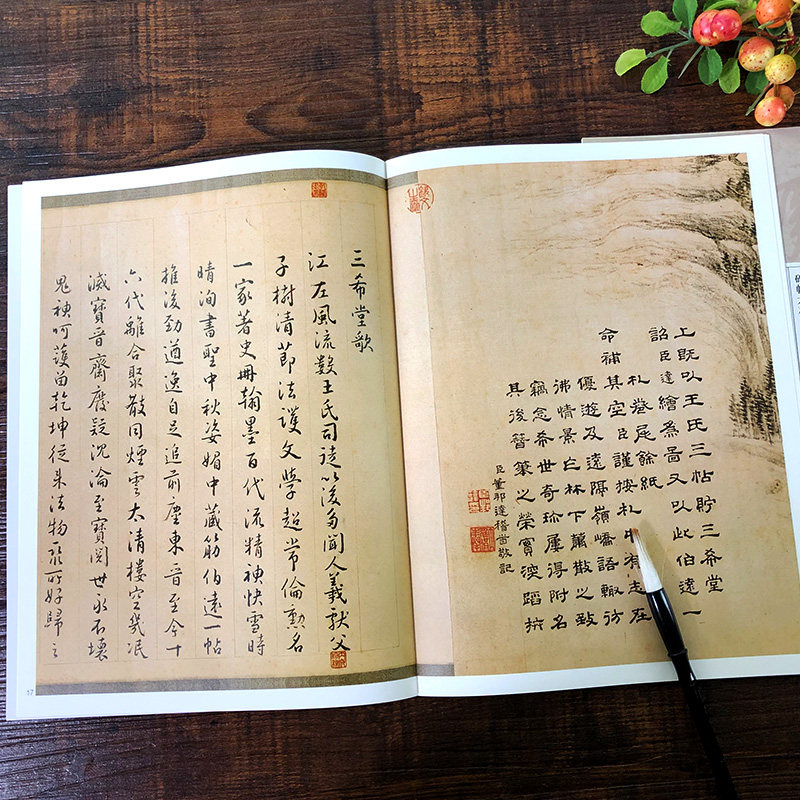 上既以王氏三帖貯三希堂
詔臣達繪為圖又以此伯遠一
札卷尾餘紙
命補其空臣謹按札中有志在
優遊及遠隔嶺嶠語輒仿
彿情景林下蕭散之致
竊念希世奇珍屢得附名
其後簪筆之榮實深蹈抃
臣董邦達稽首敬記
三希堂歌
江左風流數王氏司徒以後多聞人羲獻父
子樹清節法護文學超常倫勲名
一家著史冊翰墨百代流精神快雪時
晴洵書聖中秋姿媚中藏筋伯遠一帖
推後勁遒逸自足追前塵東晉至今十
六代離合聚散同煙雲太清樓空幾泯
滅寶晉齋廢疑沉淪至寶閱世永不壞
鬼神呵護留乾坤從來法物聚所好歸之
17